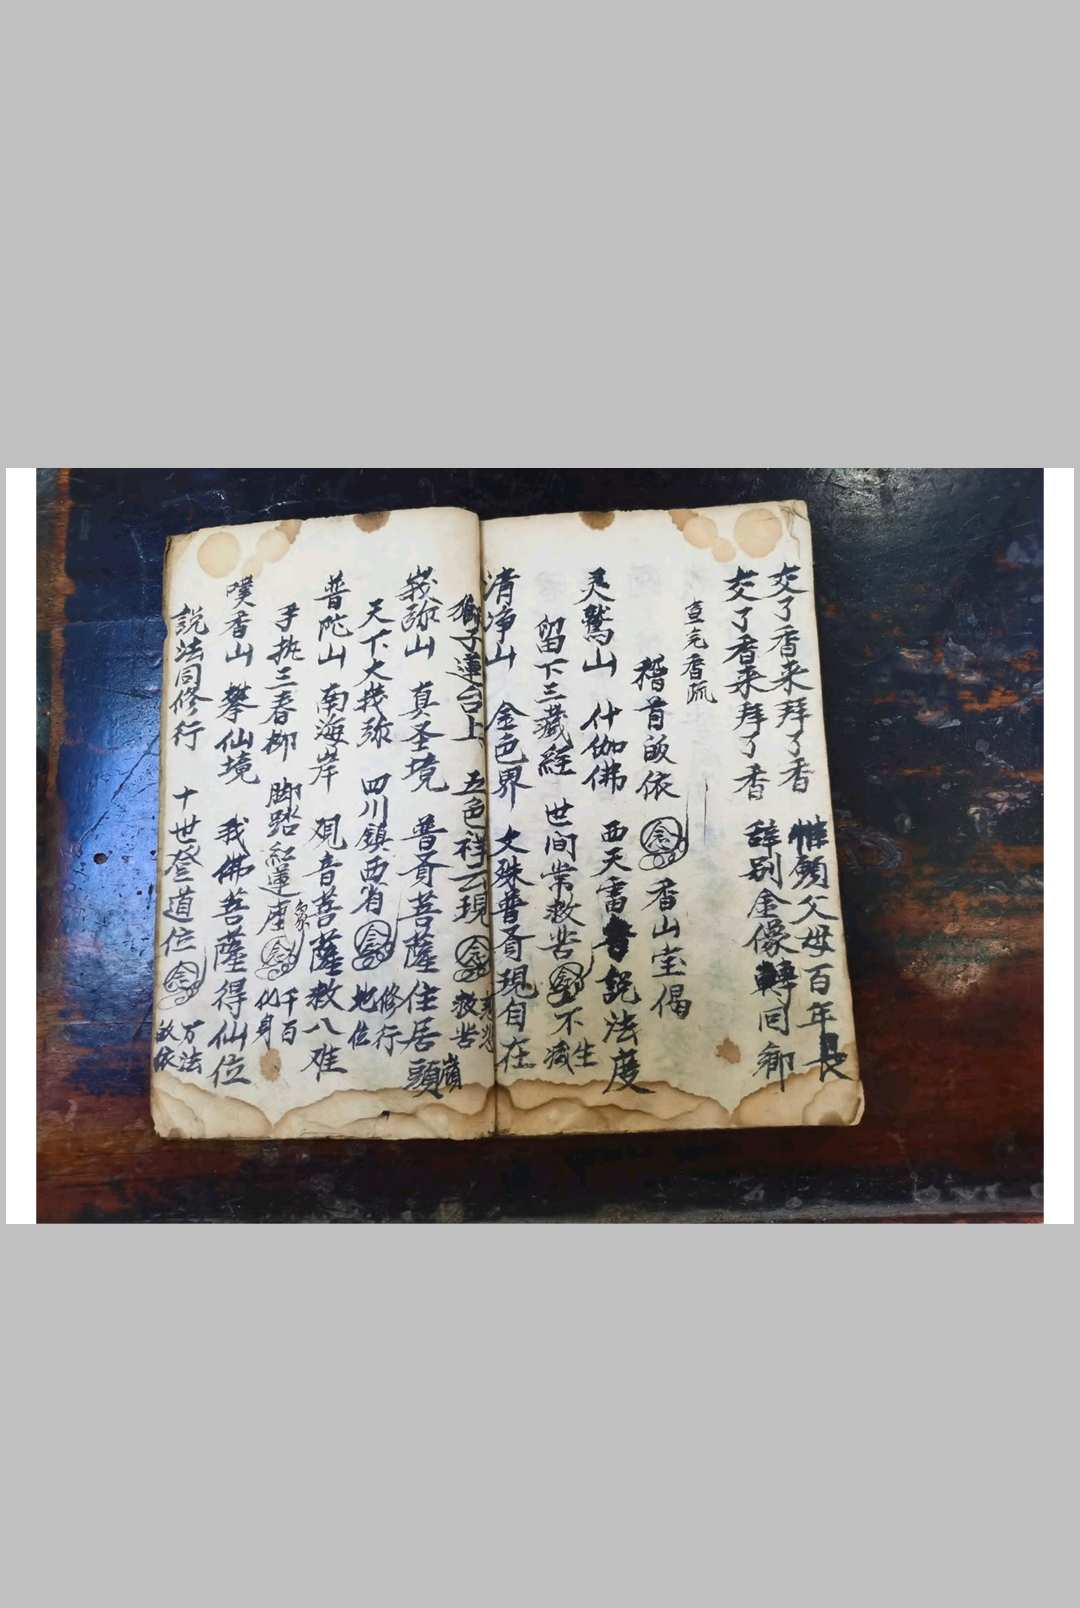 交了香来拜了香 惟願父母百年長
交了香来拜了香 辞别金像轉回鄉
宣完香疏
稽首皈依 念 香山宝偈
灵鹫山 什伽佛 西天雷音說法度
留下三藏経 世间常救苦 念 不生 不滅
清净山 金色界 文殊普贤現自在
獅子蓮台上 五色祥云現 念 救苦
峩弥山 真圣境 普贤菩薩住居嶺頭
天下大峩弥 四川鎮西省 念 修行 地位
普陀山 南海岸 观音菩薩救八难
手执三春柳 脚踏紅蓮座 念 千百 化身
噗香山 攀仙境 我佛菩薩得仙位
説法同修行 十世登道位 念 万法 皈依